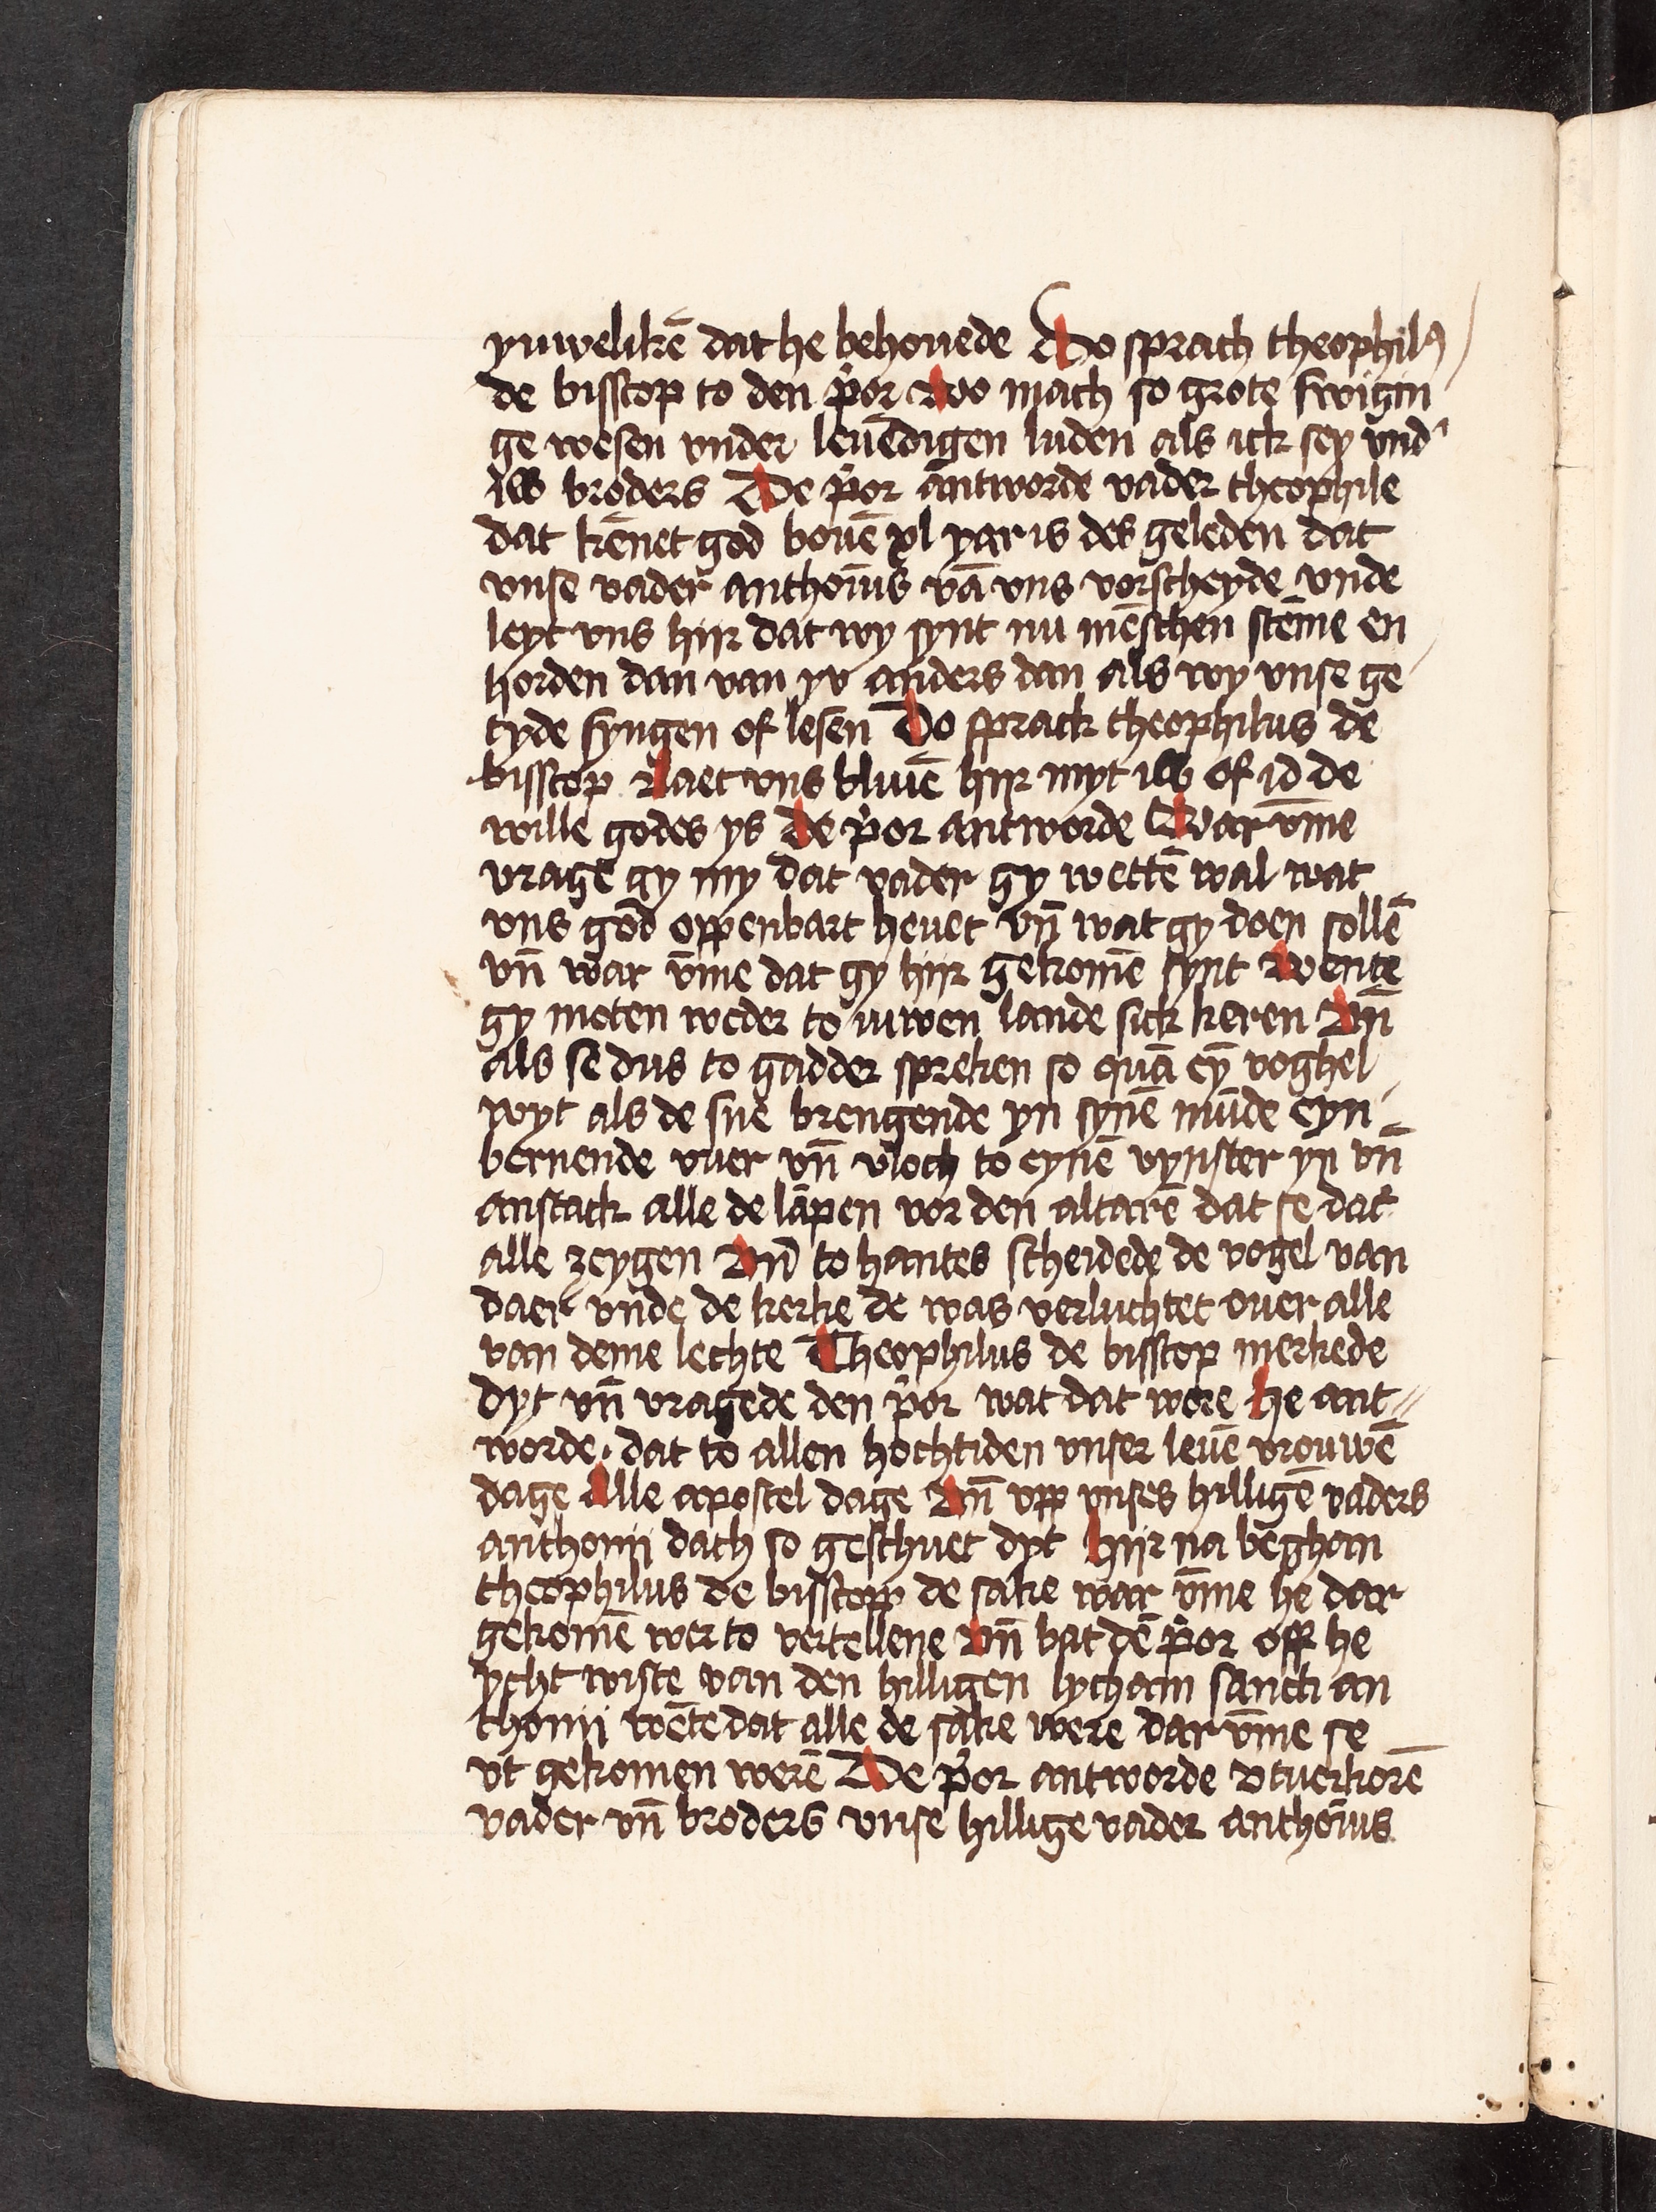 yuwelikē dat he behouede Do sprach theophilꝰ
de bisscop to den p̓or Wo mach so grote swigin
ge wesen vnder leuēdigen luden als ick sey vnd̓
iw broders De p̓or antworde vader theophile
dat kēnet god bouē xl yar is des geleden dat
vnse vader anthoīus vā vns vorscheyde vnde
leyt vns hijr dat wy synt nu mēschen stēme en
horden dan van yv anders dan als wy vnse ge
tyde syngen of lesen Do sprack theophilus de
bisscop Laet vns bliuē hijr myt iw of id de
wille godes ys De p̓or antworde War v̄me
vragē gy my dat vader gy wettē wal wat
vns god oppenbart heuet vn̄ wat gy doen sollē
vn̄ war v̄me dat gy hijr gekomē synt Wente
gy moten weder to iuwen lande sick keren Vn̄
als se dus to gadder spreken so quā eȳ voghel
wyt als de sne brengende yn synē mūde eyn
bernende vuer vn̄ vloch to eynē vynster yn vn̄
anstack alle de lāpen vor den altarē dat se dat
alle zeygen Vn̄ to hantes scheidede de vogel van
daer vnde de kerke de was verluchtet ouer alle
van deme lechte Theophilus de bisscop merkede
dyt vn̄ vragede den p̓or wat dat were he ant⸗
worde · dat to allen hochtiden vnser leuē vrouwē
dage Alle apostel dage Vn̄ vpp vnses hilligē vaders
anthonij dach so geschuet dyt hijr na beghan
theophilus de bisscopp de sake war v̄me he dar
gekomē wer to vertellene Vn̄ bat dē p̓or off he
ycht wiste van den hilligen lycham sancti an
thonij wēte dat alle de sake were dar v̄me se
vt gekomen werē De p̓or antworde vtuerkorē
vader vn̄ broders vnse hillige vader anthoīus